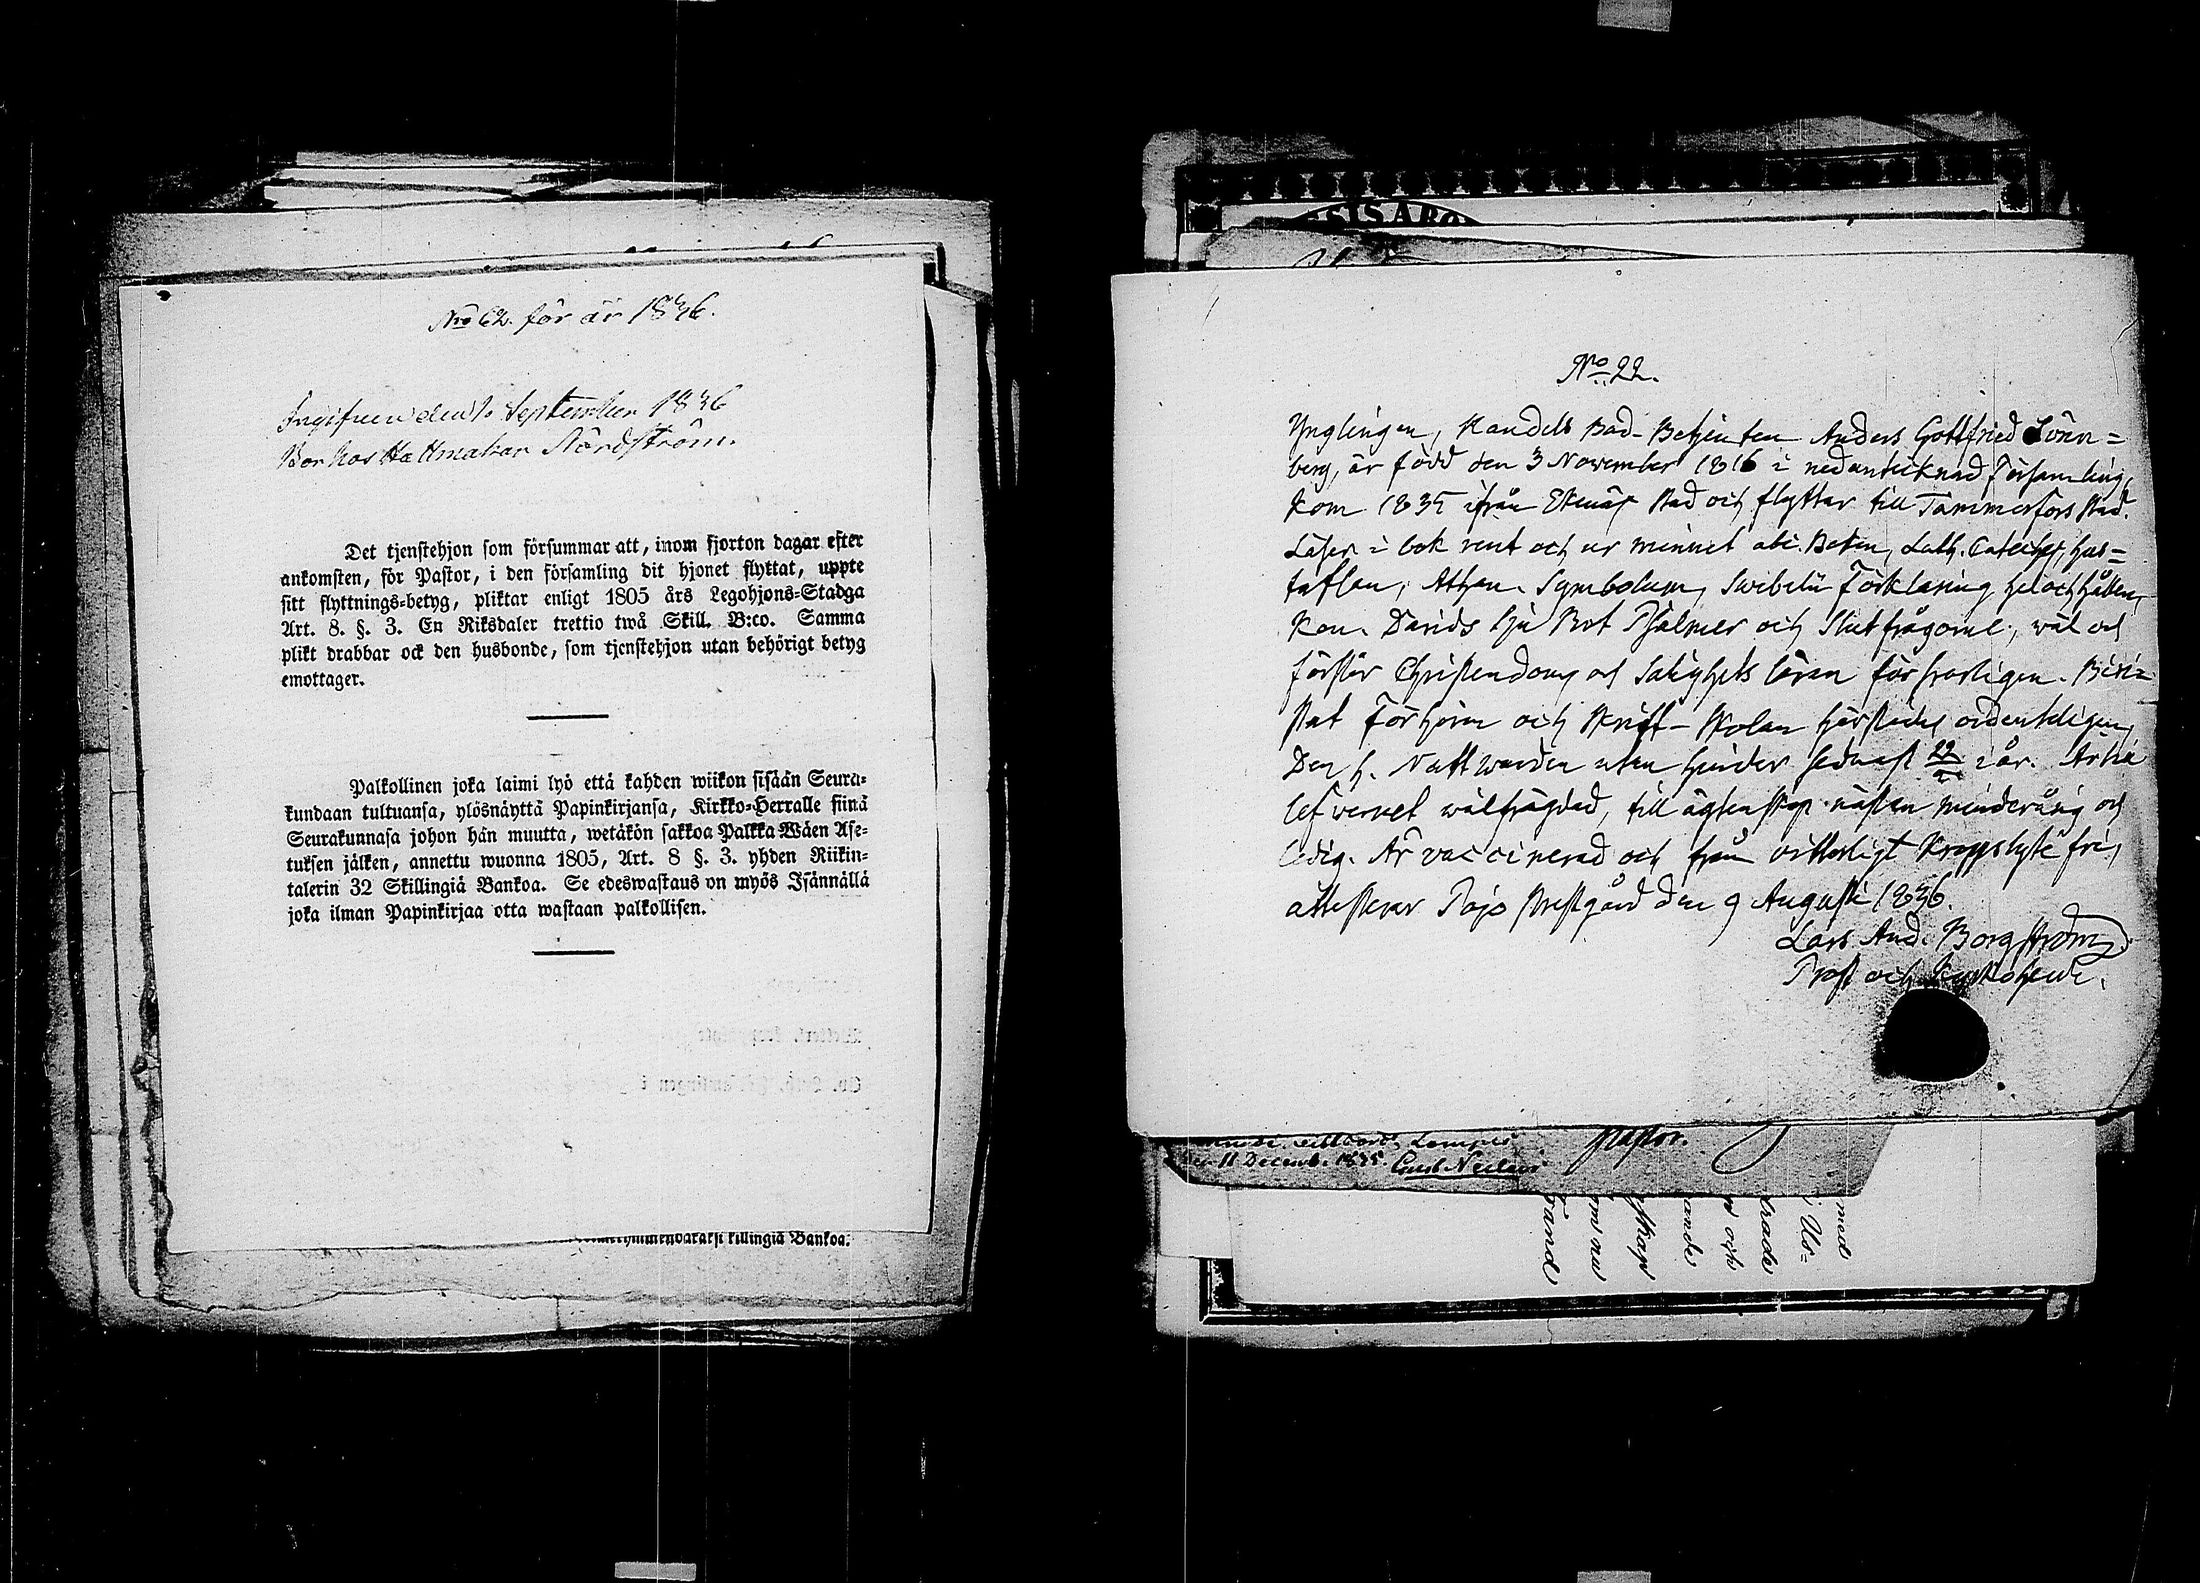 Nro 62. för år 1836.
Ingifven den 1. September 1836
Bor hos Hattmakar Nordström.
Det tjenstehjon som försummar att, inom fjorton dagar efter
ankomsten, för Pastor, i den församling dit hjonet flyttat, uppte
sitt flyttnings-betyg, pliktar enligt 1805 års Legohjons-Stadga
Art. 8. §. 3. En Riksdaler trettio twå Skill. B:co. Samma
plikt drabbar ock den husbonde, som tjenstehjon utan behörigt betyg
emottager.
Palkollinen joka laimi lyö että kahden wiikon sisään Seura-
kundaan tultuansa, ylösnäyttä Papinkirjansa, Kirkko-Herralle siinä
Seurakunnasa johon hän muutta, wetäkön sakkoa Palkka Wäen Ase-
tuksen jälken, annettu wuonna 1805, Art. 8 §. 3. yhden Riikin-
talerin 32 Skillingiä Bankoa. Se edeswastaus on myös Isännällä
joka ilman Papinkirjaa otta wastaan palkollisen.
killingiä Bankoa.
No 22.
Ynglingen, Handels Bod-Betjenten Anders Gottfried Lönn=
berg, är född den 3 November 1816 i nedantecknad Församling,
kom 1835 ifrån Ekenäs stad och flyttar till Tammerfors stad.
Läser i bok rent och ur minnet abc. Boken, Luth. Cateches, hus=
taflan, Athan. Symbolum, Swebelii Förklaring hel och hållen,
Kon. Davids sju Bot Psalmer och Slutfrågorne, wäl och
förstår Christendoms och Salighets läran förswarligen. Bevi=
stat Förhören och Skrift-Skolan härstädes ordenteligen,
Den h. Nattwarden utan hinder sednast 22 i år. Är til
lefvernet wälfrägdad, till ägtenskap nästan minderårig och
ledig. Är vaccinerad och från vitterligt kroppslyte fri,
attesterar Pojo Prestgård den 9 Augusti 1836.
Lars And. Borgström
Prost och Kyrkoherde.
Lempis
Pastor.
11 Decemb. 1835. Gust.
med
Us=
och
skap